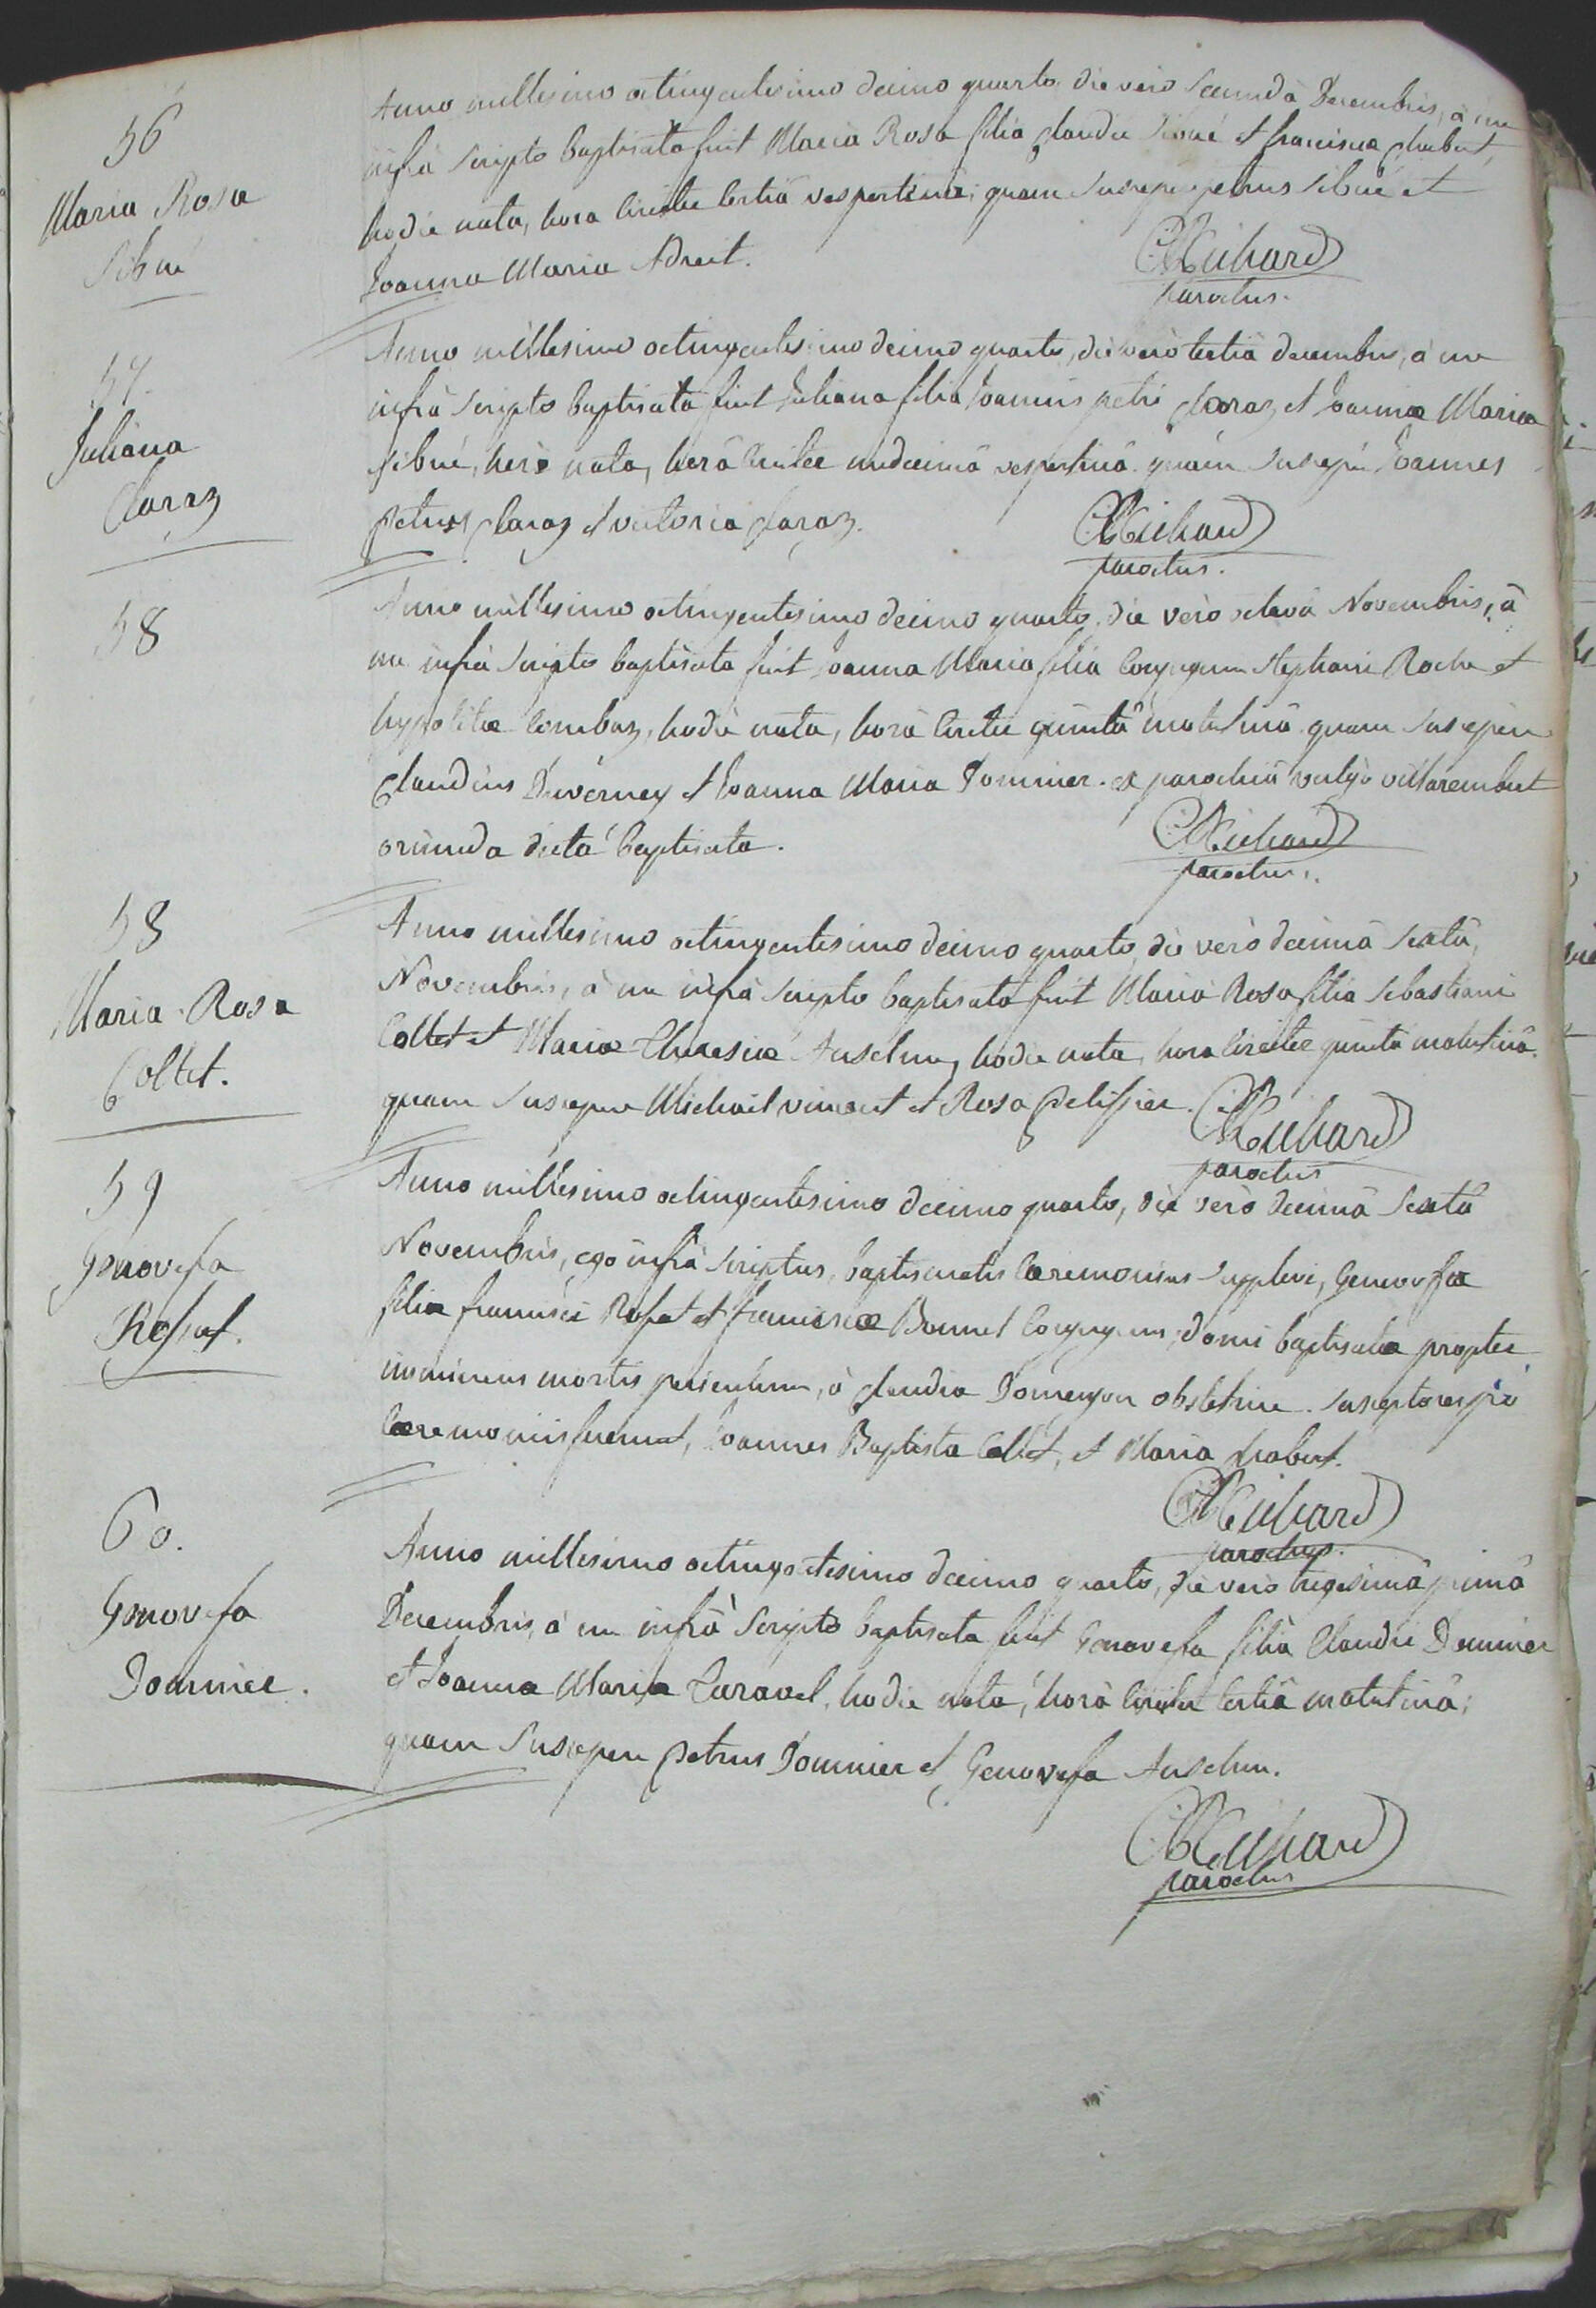 56
Maria Rosa
Sibué
Anno millesimo octingentesimo decimo quarto, die verò secundâ Decembris, à me
infrà scripto baptisata fuit Maria Rosa filia Claudii Sibué et franciscæ Chabert,
hodie nata, hora circiter tertiâ vespertinâ; quam suscepere petrus Sibué et
Joanna Maria Adreit.
Richard
parochus.
57.
Juliana
Claraz
Anno millesimo octingentesimo decimo quarto, die verò tertiâ decembris, à me
infrà scripto baptisata fuit Juliana filia Joannis petri Claraz et Joannæ Mariæ
Sibué, heri nata, horâ circiter undecimâ vespertinâ. quam suscepere Joannes
petrus Claraz et victoria Claraz.
Richard
parochus.
58
Anno millesimo octingentesimo decimo quarto, die verò octavâ Novembris, à
me infrà scripto baptisata fuit Joanna Maria filia Conjugum Stephani Roche et
hypolitæ Combaz, hodie nata, horâ circiter quintâ matutinâ. quam suscepere
Claudius Duverney et Joanna Maria Dommier. ex parochiâ vulgò villarembert
oriunda dicta baptisata.
Richard
parochus.
58
Maria Rosa
Collet.
Anno millesimo octingentesimo decimo quarto, die verò decimâ sextâ,
Novembris, à me infrà scripto baptisata fuit Maria Rosa filia Sebastiani
Collet et Mariæ Theresiæ Anselme, hodie nata, hora circiter quintâ matutinâ.
quam suscepere Michael vincent et Rosa Pelissier.
Richard
parochus
59
Genovefa
Rossat.
Anno millesimo octingentesimo decimo quarto, die verò decimâ sextâ
Novembris, ego infrà scriptus, baptismatis Cæremonias supplevi, Genovefæ
filiæ francisci Rossat et franciscæ Bonnel Conjugum, domi baptisatæ propter
imminens mortis periculum, à Claudia Domenjon obstetrice. susceptores pro
Cæremoniis fuerunt, Joannes Baptista Collet, et Maria Chabert.
Richard
parochus.
60.
Genovefa
Dommier.
Anno millesimo octingetesimo decimo quarto, die verò trigesimâ primâ
Decembris, à me infrà scripto baptisata fuit Genovefa filia Claudii Dommier
et Joanna Maria Taravel, hodie nata, horâ circiter tertiâ matutinâ;
quam suscepere petrus Dommier et Genovefa Anselme.
Richard
parochus